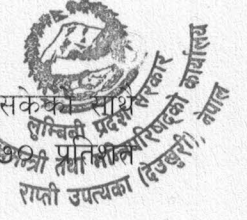 सकेको साथै
७०% प्रतिशत
लुम्बिनी प्रदेश सरकार
मुख्यमन्त्री तथा मन्त्रिपरिषद्को कार्यालय
राप्ती उपत्यका (देउखुरी), नेपाल